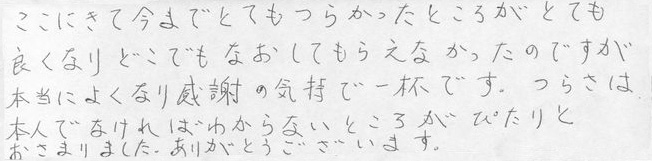 ここにきて今までとてもつらかったところがとても
良くなりどこでもなおしてもらえなかったのですが
本当によくなり感謝の気持で一杯です。つらさは
本人でなければわからないところがぴたりと
おさまりました。ありがとうございます。